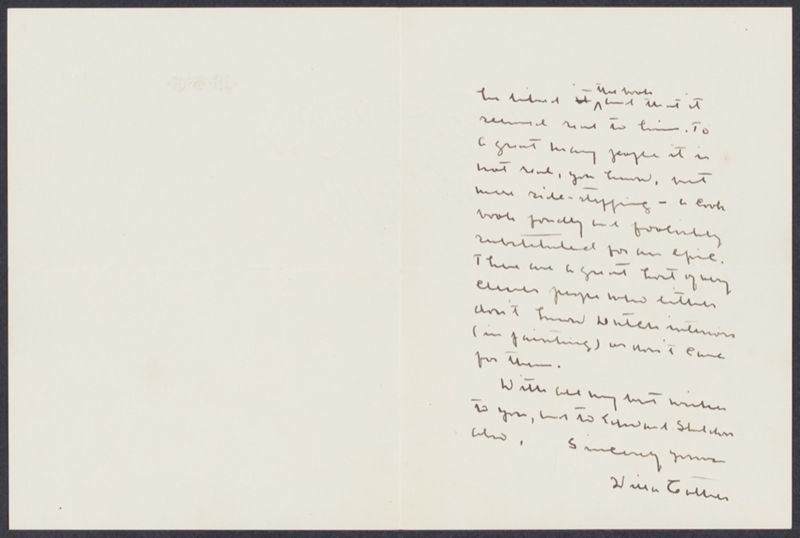 he liked it ^ the book and that it
seemed real to him. To
a great many people it is
not real, you know, but
mere side-stepping - a cook
book fondly and foolishly
substituted for an epic.
There are a great host of very
clever people who either
don't know Dutch interiors
(in painting) or don't care
for them.
With all my best wishes
to you, and to Edward Sheldon
also.
Sincerely yours
Willa Cather